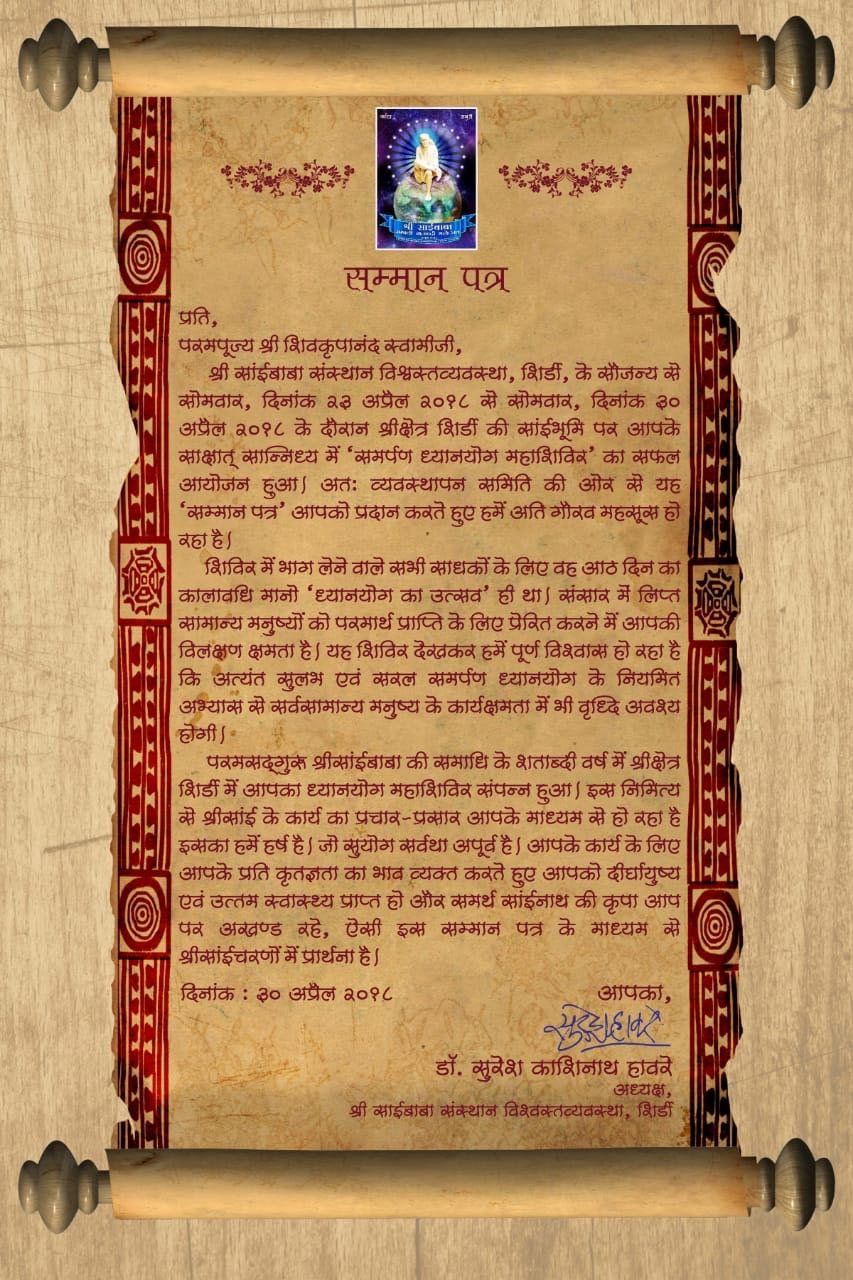 श्री साईबाबा
सम्मान पत्र
प्रति,
परमपूज्य श्री शिवकृपानंद स्वामीजी,
श्री सांईबाबा संस्थान विश्वस्तव्यवस्था, शिर्डी, के सौजन्य से
सोमवार, दिनांक २३ अप्रैल २०१८ से सोमवार, दिनांक ३०
अप्रैल २०१८ के दौरान श्रीक्षेत्र शिर्डी की सांईभूमि पर आपके
साक्षात् सान्निध्य में ‘समर्पण ध्यानयोग महाशिविर’ का सफल
आयोजन हुआ। अतः व्यवस्थापन समिति की ओर से यह
‘सम्मान पत्र’ आपको प्रदान करते हुए हमें अति गौरव महसूस हो
रहा है।
शिविर में भाग लेने वाले सभी साधकों के लिए वह आठ दिन का
कालावधि मानो ‘ध्यानयोग का उत्सव’ ही था। संसार में लिप्त
सामान्य मनुष्यों को परमार्थ प्राप्ति के लिए प्रेरित करने में आपकी
विलक्षण क्षमता है। यह शिविर देखकर हमें पूर्ण विश्वास हो रहा है
कि अत्यंत सुलभ एवं सरल समर्पण ध्यानयोग के नियमित
अभ्यास से सर्वसामान्य मनुष्य के कार्यक्षमता में भी वृध्दि अवश्य
होगी।
परमसद्गुरू श्रीसांईबाबा की समाधि के शताब्दी वर्ष में श्रीक्षेत्र
शिर्डी में आपका ध्यानयोग महाशिविर संपन्न हुआ। इस निमित्य
से श्रीसांई के कार्य का प्रचार-प्रसार आपके माध्यम से हो रहा है
इसका हमें हर्ष है। जो सुयोग सर्वथा अपूर्व है। आपके कार्य के लिए
आपके प्रति कृतज्ञता का भाव व्यक्त करते हुए आपको दीर्घायुष्य
एवं उत्तम स्वास्थ्य प्राप्त हो और समर्थ सांईनाथ की कृपा आप
पर अखण्ड रहे, ऐसी इस सम्मान पत्र के माध्यम से
श्रीसांईचरणों में प्रार्थना है।
दिनांक : ३० अप्रैल २०१८ आपका,
सुरेश हावरे
डॉ. सुरेश काशिनाथ हावरे
अध्यक्ष,
श्री साईबाबा संस्थान विश्वस्तव्यवस्था, शिर्डी